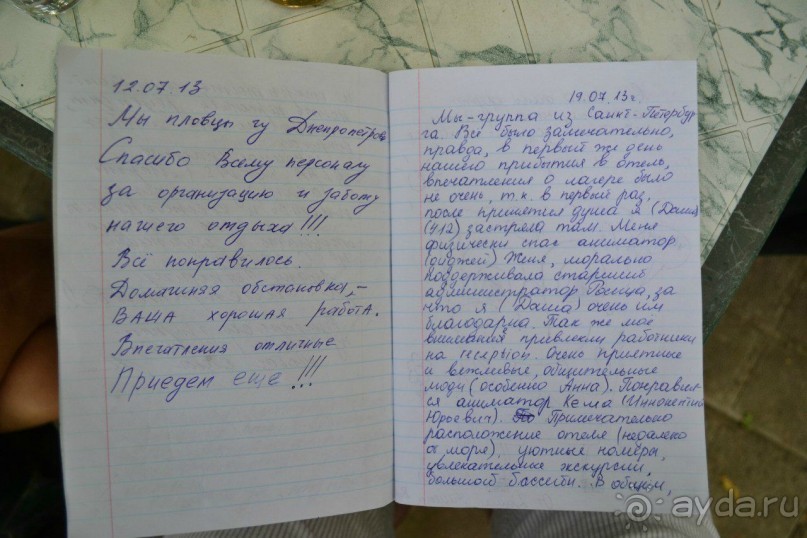 12.07.13
Мы пловцы из Днепропетров
Спасибо всему персоналу
за организацию и заботу
нашего отдыха!!!
Всё понравилось.
Домашняя обстановка, –
ВАША хорошая работа.
Впечатления отличные
Приедем еще!!!
19.07.13г.
Мы-группа из Санкт-Петербур
га. Всё было замечательно,
правда, в первый же день
нашего прибытия в отель,
впечатления о лагере было
не очень, т.к. в первый раз,
после принятия душа я (Даша)
(412) застряла там. Меня
физически спас аниматор
(диджей) Женя, морально
поддерживала старший
администратор Росица, за
что я (Даша) очень им
благодарна. Так же мое
внимания привлекли работники
на recepsion. Очень приятные
и вежливые, общительные
люди (особенно Анна). Понравил-
ся аниматор Кеша (Иннокентий
Юрьевич). Примечательно
расположение отеля (недалеко
от моря), уютные номеры,
увлекательные экскурсии,
большой бассейн. В общем,
ayda.ru